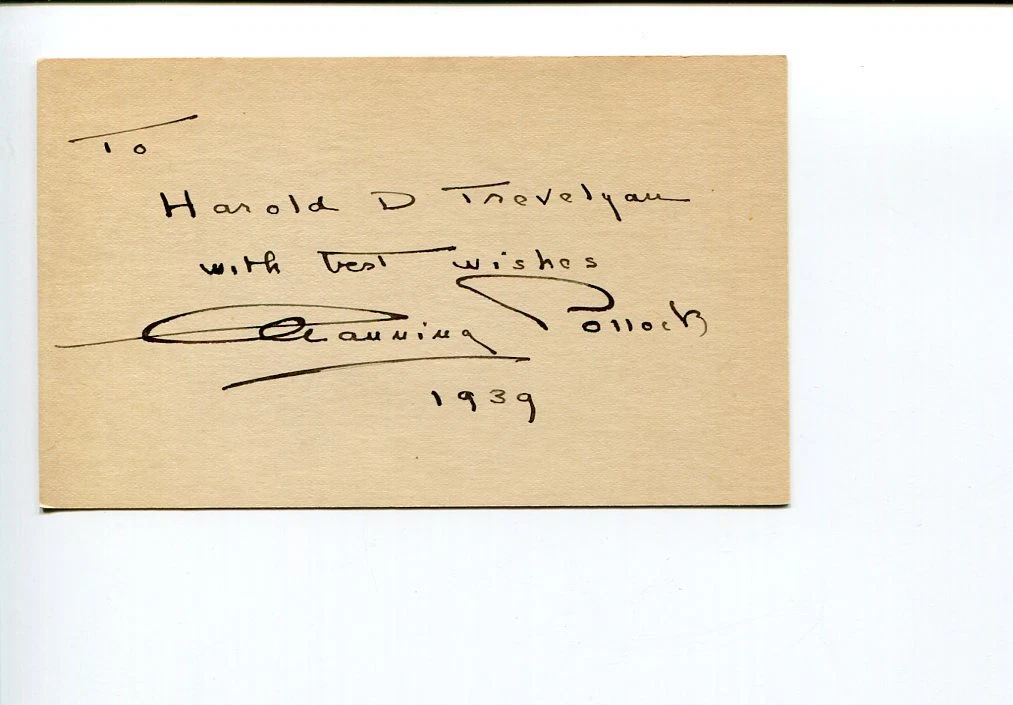 To
Harold D Trevelyan
with best wishes
Channing Pollock
1939